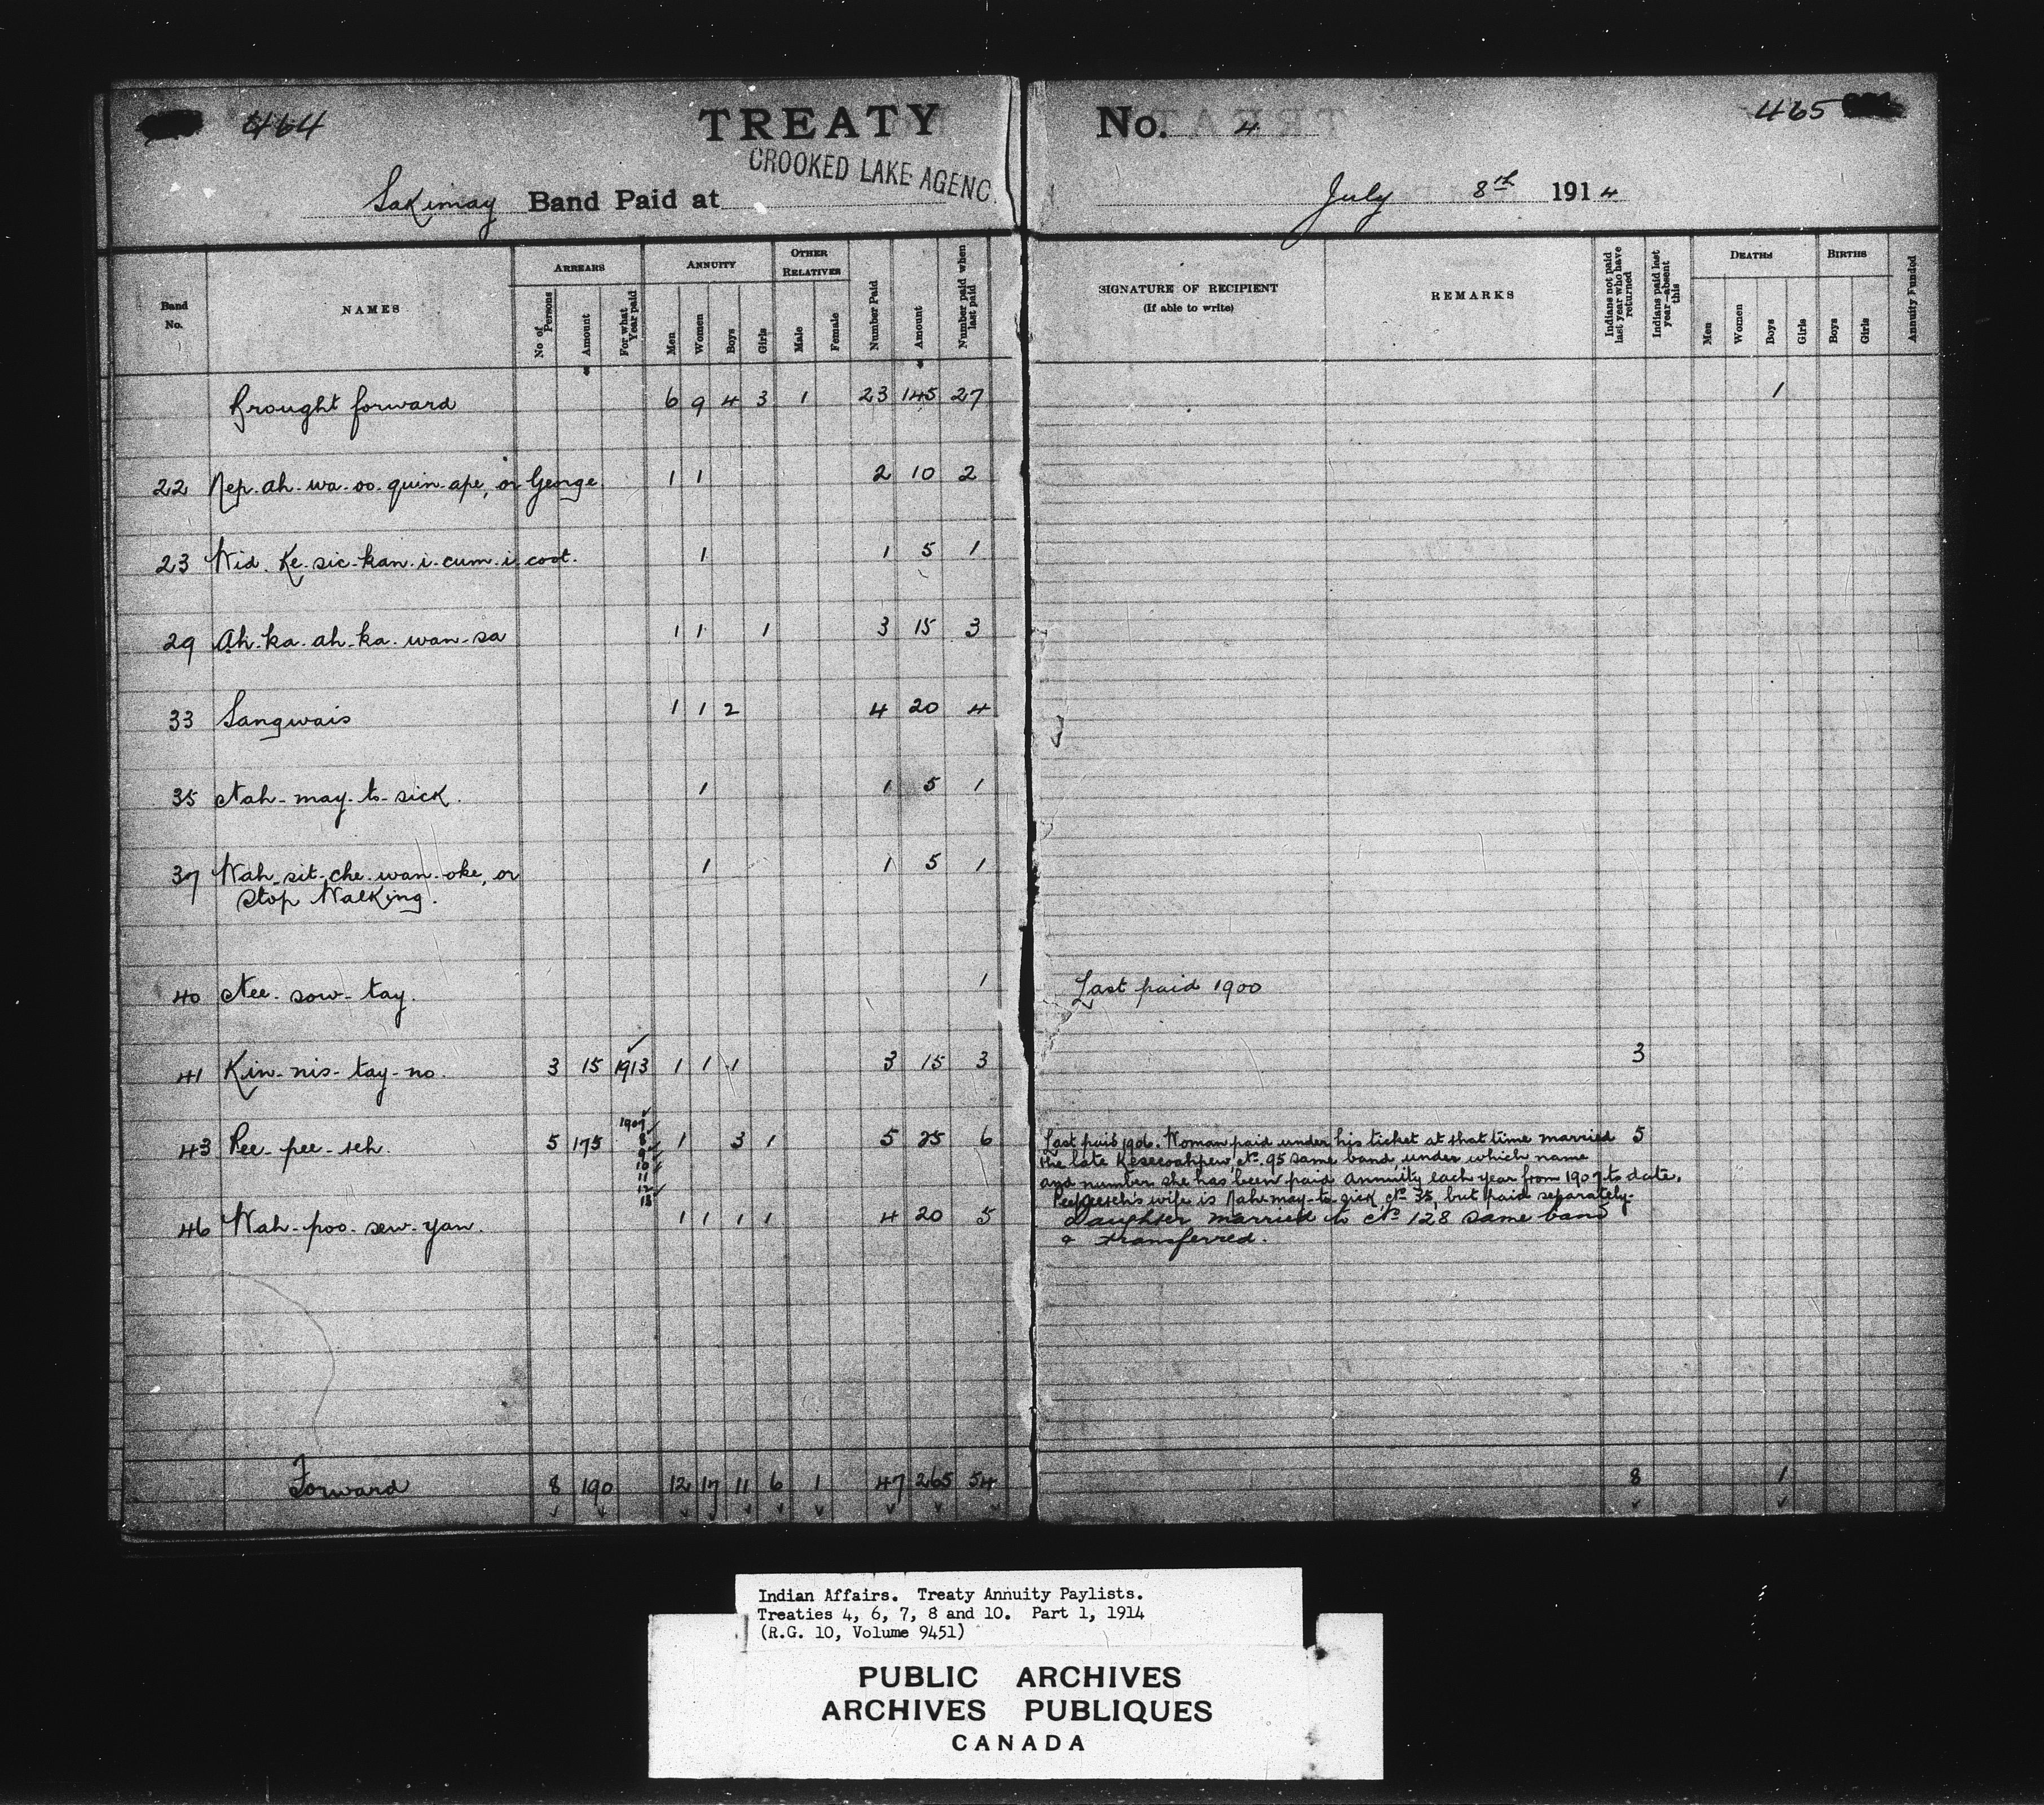 464
TREATY
No. 4
465
CROOKED LAKE AGENC
Sakimay Band Paid at
July 8th 1914
Band No.
NAMES
ARREARS
No of Persons
Amount
For what Year paid
ANNUITY
Men
Women
Boys
Girls
OTHER RELATIVES
Male
Female
Number Paid
Amount
Number paid when last paid
SIGNATURE OF RECIPIENT
(If able to write)
REMARKS
Indians not paid last year who have returned
Indians paid last year—absent this
DEATHS
Men
Women
Boys
Girls
BIRTHS
Boys
Girls
Annuity Funded
Brought forward 6 9 4 3 1 23 145 27 1
22 Nep. ah. wa. oo. quin. ape, or George 1 1 2 10 2
23 Wid. Ke. sic. kan. i. cum. i. coot. 1 1 5 1
29 Ah. ka. ah. ka. wan. sa 1 1 1 3 15 3
33 Sangwais 1 1 2 4 20 4
35 Nah. may. to. sick. 1 1 5 1
37 Wah. sit. che. wan. oke, or 1 1 5 1
Stop Walking.
40 Nee. sow. tay. 1 Last paid 1900
41 Kin. nis. tay. no. 3 15 1913 1 1 1 3 15 3 3
43 Pee. pee. seh. 5 175 1907 8 9 10 11 12 13 1 3 1 5 25 6 5
Last paid 1906. Woman paid under his ticket at that time married
the late Kesecoahpew, No. 95 same band, under which name
and number she has been paid annuity each year from 1907 to date.
Peepeeseh's wife is Nah-may-to-sick, No 35, but paid separately.
46 Wah. poo. sew. yan. 1 1 1 1 4 20 5 daughter married to No 128 same band
& transferred.
Forward 8 190 12 17 11 6 1 47 265 54 8 1
Indian Affairs. Treaty Annuity Paylists.
Treaties 4, 6, 7, 8 and 10. Part 1, 1914
(R.G. 10, Volume 9451)
PUBLIC ARCHIVES
ARCHIVES PUBLIQUES
CANADA